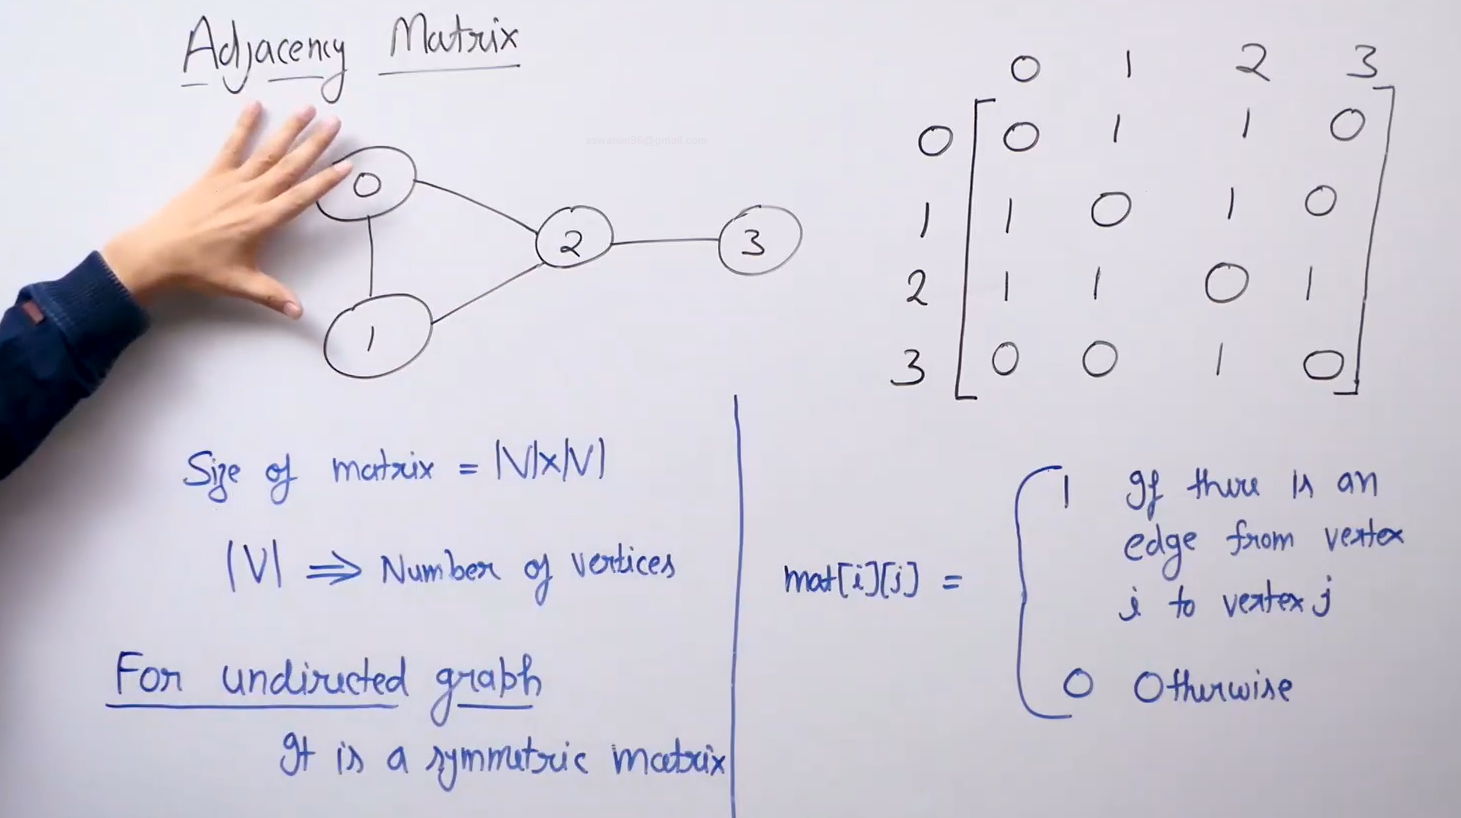 Adjacency Matrix
0
1
2
3
0 1 2 3
0 0 1 1 0
1 1 0 1 0
2 1 1 0 1
3 0 0 1 0
Size of matrix = |V|x|V|
|V| ⇒ Number of vertices
For undirected graph
It is a symmetric matrix
mat[i][j] =
1 If there is an
edge from vertex
i to vertex j
0 Otherwise